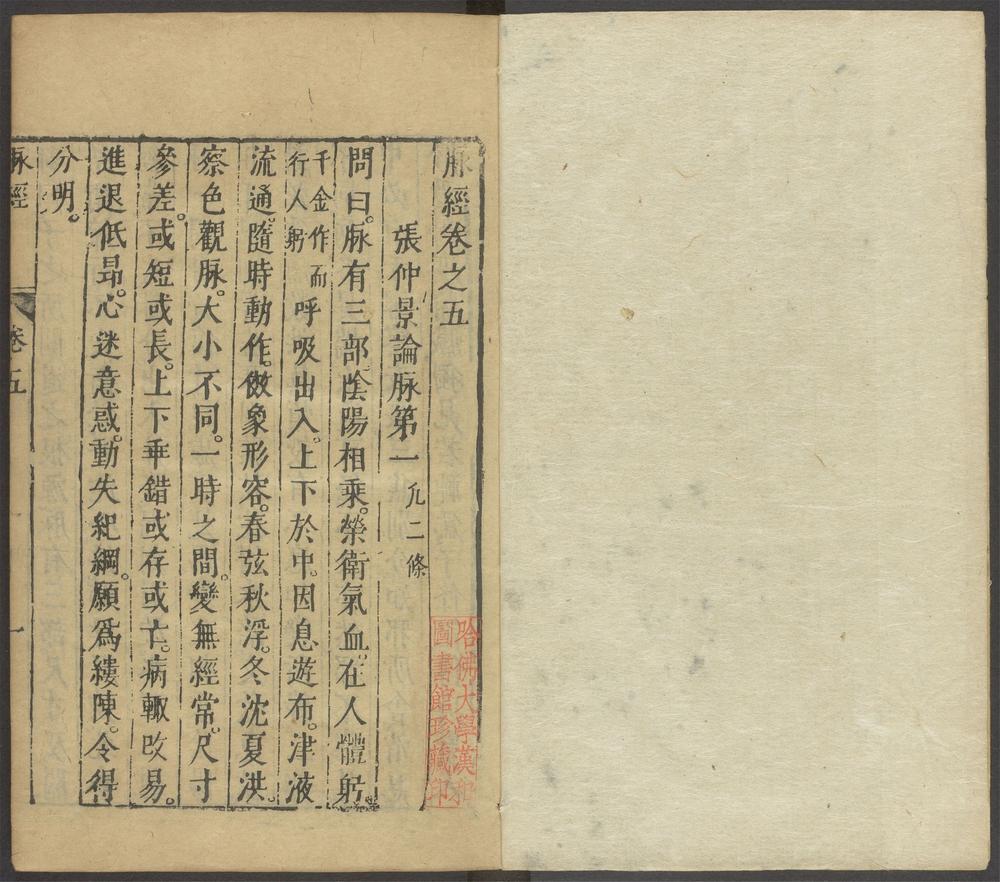 脉經卷之五
張仲景論脉第一 凢二條
問曰。脉有三部。陰陽相乘。榮衛氣血。在人體躬。
千金作而行人躬 呼吸出入。上下於中。因息遊布。津液
流通。隨時動作。傚象形容。春弦秋浮。冬沈夏洪。
察色觀脉。大小不同。一時之間。變無經常。尺寸
參差。或短或長。上下乖錯。或存或亡。病輙改易。
進退低昂。心迷意惑。動失紀綱。願爲縷陳。令得
分明。
脉經 卷五 一
哈佛大學漢和
圖書館珍藏印